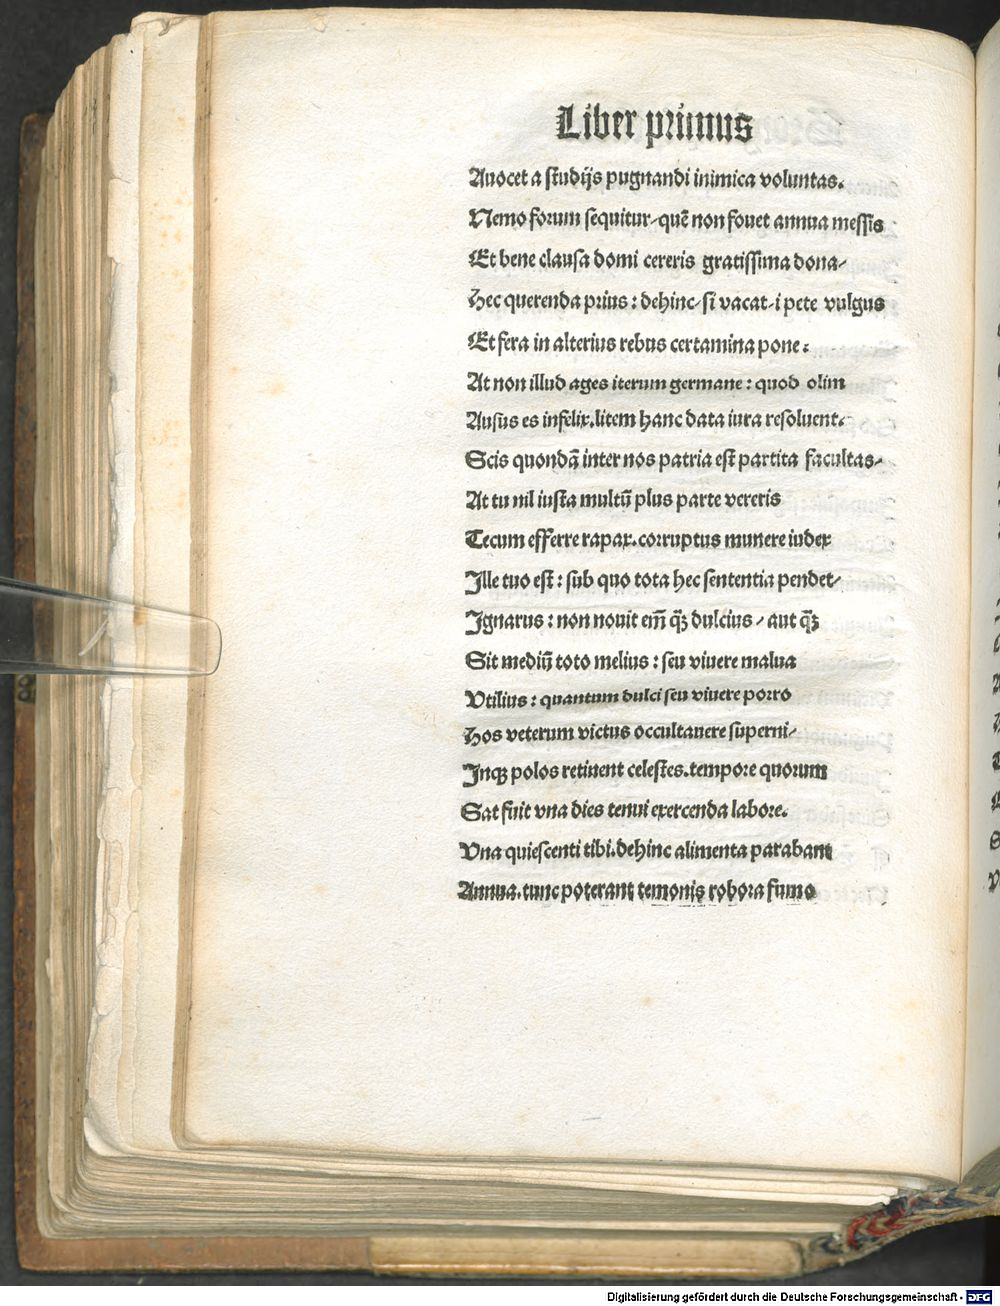 Liber primus
Auocet a studijs pugnandi inimica voluntas.
Nemo forum sequitur/quē non fouet annua messis
Et bene clausa domi cereris gratissima dona/
Hec querenda prius: dehinc/si vacat/i pete vulgus
Et fera in alterius rebus certamina pone:
At non illud ages iterum germane: quod olim
Ausus es infelix.litem hanc data iura resoluent.
Scis quondā inter nos patria est partita facultas/
At tu nil iusta multū plus parte vereris
Tecum efferre rapax.corruptus munere iudex
Ille tuo est: sub quo tota hec sententia pendet/
Ignarus: non nouit em̄ qȝ dulcius/aut qȝ
Sit mediū toto melius: seu viuere malua
Vtilius: quantum dulci seu viuere porro
Hos veterum victus occultauere superni/
Inqȝ polos retinent celestes.tempore quorum
Sat fuit vna dies tenui exercenda labore.
Vna quiescenti tibi.dehinc alimenta parabant
Annua.tunc poterant temonis robora fumo
Digitalisierung gefördert durch die Deutsche Forschungsgemeinschaft - DFG